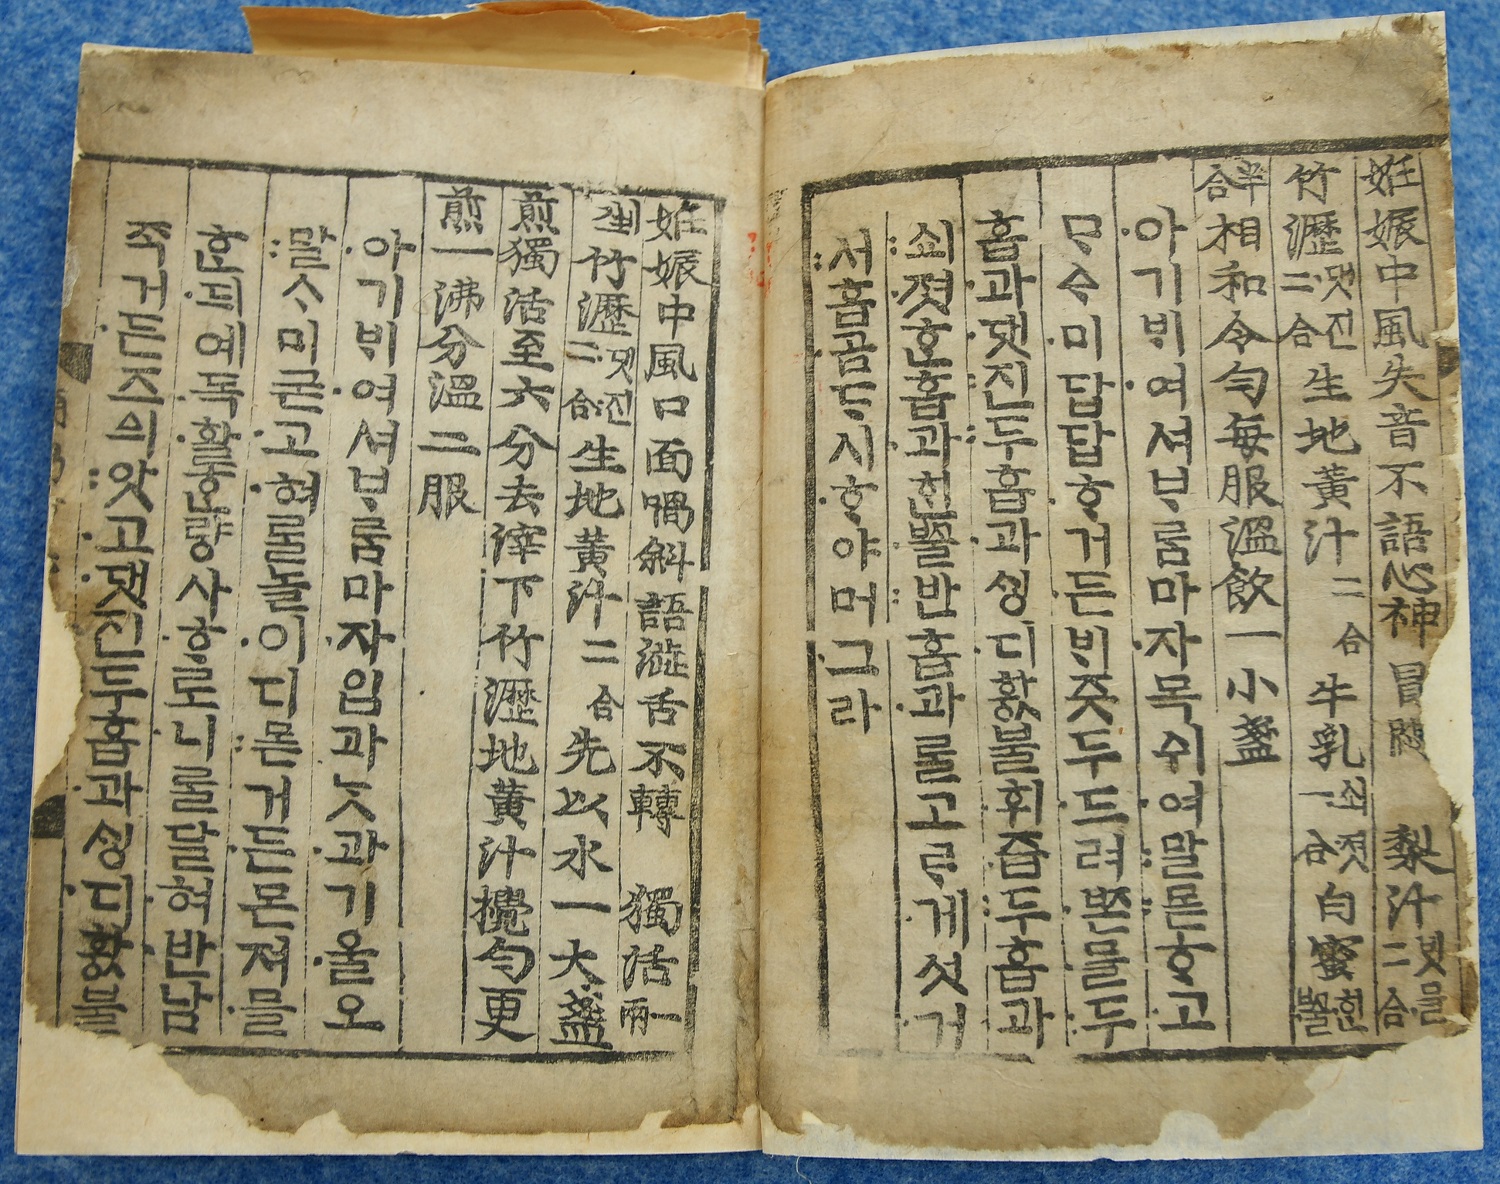 姙娠中風失音不語心神冒悶 梨汁二合 빗믈
竹瀝二合 댓진 生地黃汁二合 牛乳一合 쇠졋 白蜜 ᄒᆡᆫᄢᅮᆯ
半合 相和令勻每服溫飮一小盞
아기ᄇᆡ여셔ᄇᆞᄅᆞᆷ마자목쉬여말몯ᄒᆞ고
ᄆᆞᅀᆞ미답답ᄒᆞ거든ᄇᆡ즛두드려ᄧᅩᆫ믈두
홉과댓진두홉과ᄉᆡᆼ디황불휘즙두홉과
쇠졋ᄒᆞᆫ홉과ᄒᆡᆫᄢᅮᆯ반홉과ᄅᆞᆯ고ᄅᆞ게섯거
서홉곰ᄃᆞ시ᄒᆞ야머그라
姙娠中風口面喎斜語澁舌不轉 獨活一兩
剉 竹瀝二合 댓진 生地黃汁二合 先以水一大盞
煎獨活至六分去滓下竹瀝地黃汁攪勻更
煎一沸分溫二服
아기ᄇᆡ여셔ᄇᆞᄅᆞᆷ마자입과ᄂᆞᆺ과기울오
말ᄉᆞ미굳고혀ᄅᆞᆯ놀이디몯거든몬져믈
ᄒᆞᆫ되예독활ᄒᆞᆫ량사ᄒᆞ로니ᄅᆞᆯ달혀반남
죽거든즈의앗고댓진두홉과ᄉᆡᆼ디황불